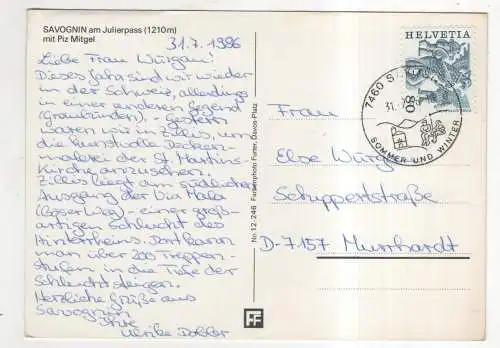 SAVOGNIN am Julierpass (1210m)
mit Piz Mitgel
31.7.1996
Liebe Frau Würgau!
Dieses Jahr sind wir wieder
in der Schweiz, allerdings
in einer anderen Gegend
(Graubünden). - Gestern
waren wir in Zillis, um
die kunstvolle Decken-
malerei der St. Martins-
Kirche anzusehen.
Zillis liegt am südlichen
Ausgang der Via Mala
(Böser Weg) - einer groß-
artigen Schlucht des
Hinterrheins. Dort kann
man über 300 Treppen-
stufen in die Tiefe der
Schlucht steigen.
Herzliche Grüße aus
Savognin
Ihre
Ulrike
Nr. 12-246 Farbenphoto Furter, Davos-Platz
FF
HELVETIA
80
7460
31. 7.
SOMMER UND WINTER
Frau
Else
Schuppertstraße
D-7157 Murrhardt